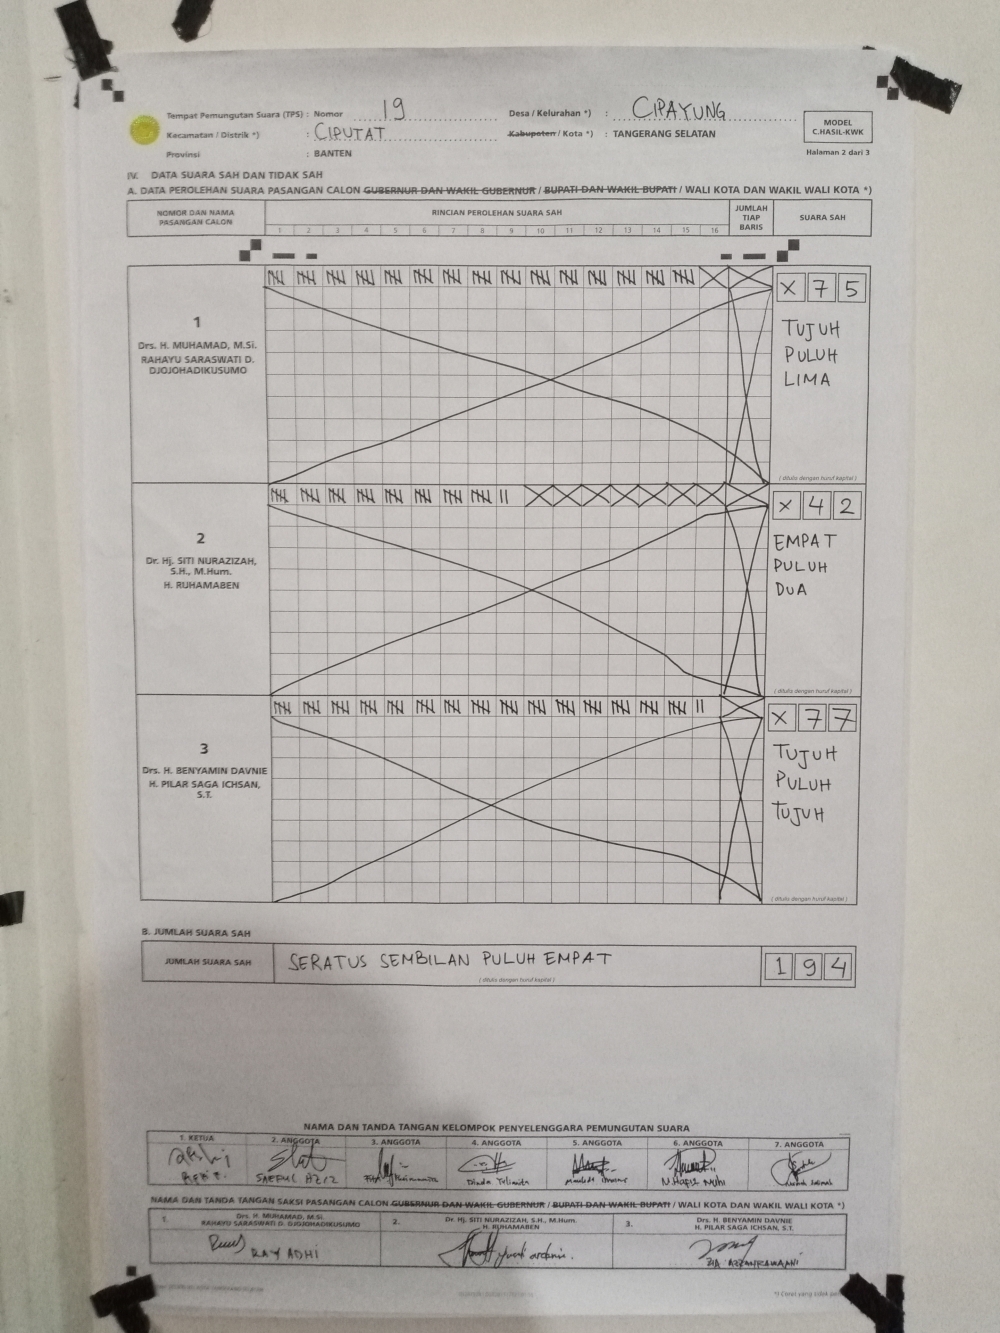 Tempat Pemungutan Suara (TPS) : Nomor 19 Desa / Kelurahan *) : CIPAYUNG
Kecamatan / Distrik *) : CIPUTAT Kabupaten / Kota *) : TANGERANG SELATAN
Provinsi : BANTEN
MODEL
C.HASIL-KWK
Halaman 2 dari 3
IV. DATA SUARA SAH DAN TIDAK SAH
A. DATA PEROLEHAN SUARA PASANGAN CALON GUBERNUR DAN WAKIL GUBERNUR / BUPATI DAN WAKIL BUPATI / WALI KOTA DAN WAKIL WALI KOTA *)
NOMOR DAN NAMA
PASANGAN CALON
RINCIAN PEROLEHAN SUARA SAH
1 2 3 4 5 6 7 8 9 10 11 12 13 14 15 16
JUMLAH
TIAP
BARIS
SUARA SAH
1
Drs. H. MUHAMAD, M.Si.
RAHAYU SARASWATI D.
DJOJOHADIKUSUMO
X 7 5
TUJUH
PULUH
LIMA
( ditulis dengan huruf kapital )
2
Dr. Hj. SITI NURAZIZAH,
S.H., M.Hum.
H. RUHAMABEN
X 4 2
EMPAT
PULUH
DUA
( ditulis dengan huruf kapital )
3
Drs. H. BENYAMIN DAVNIE
H. PILAR SAGA ICHSAN,
S.T.
X 7 7
TUJUH
PULUH
TUJUH
( ditulis dengan huruf kapital )
B. JUMLAH SUARA SAH
JUMLAH SUARA SAH
SERATUS SEMBILAN PULUH EMPAT
( ditulis dengan huruf kapital )
1 9 4
NAMA DAN TANDA TANGAN KELOMPOK PENYELENGGARA PEMUNGUTAN SUARA
1. KETUA 2. ANGGOTA 3. ANGGOTA 4. ANGGOTA 5. ANGGOTA 6. ANGGOTA 7. ANGGOTA
SAEFUL AZIZ
NAMA DAN TANDA TANGAN SAKSI PASANGAN CALON GUBERNUR DAN WAKIL GUBERNUR / BUPATI DAN WAKIL BUPATI / WALI KOTA DAN WAKIL WALI KOTA *)
1. Drs. H. MUHAMAD, M.Si.
RAHAYU SARASWATI D. DJOJOHADIKUSUMO
2. Dr. Hj. SITI NURAZIZAH, S.H., M.Hum.
H. RUHAMABEN
3. Drs. H. BENYAMIN DAVNIE
H. PILAR SAGA ICHSAN, S.T.
RAY ADHI